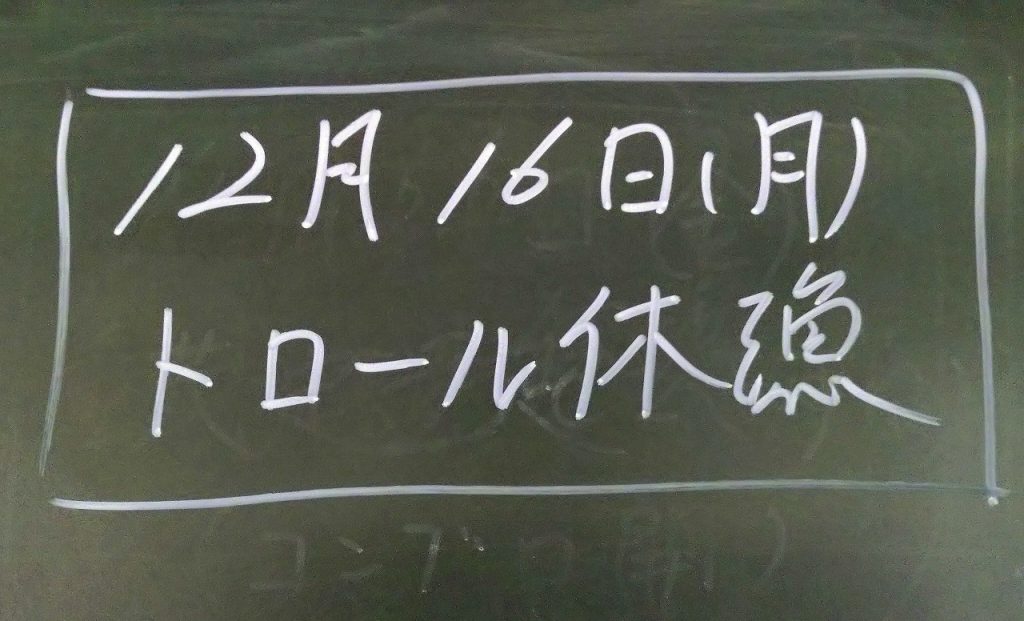 12月16日(月)
トロール休漁